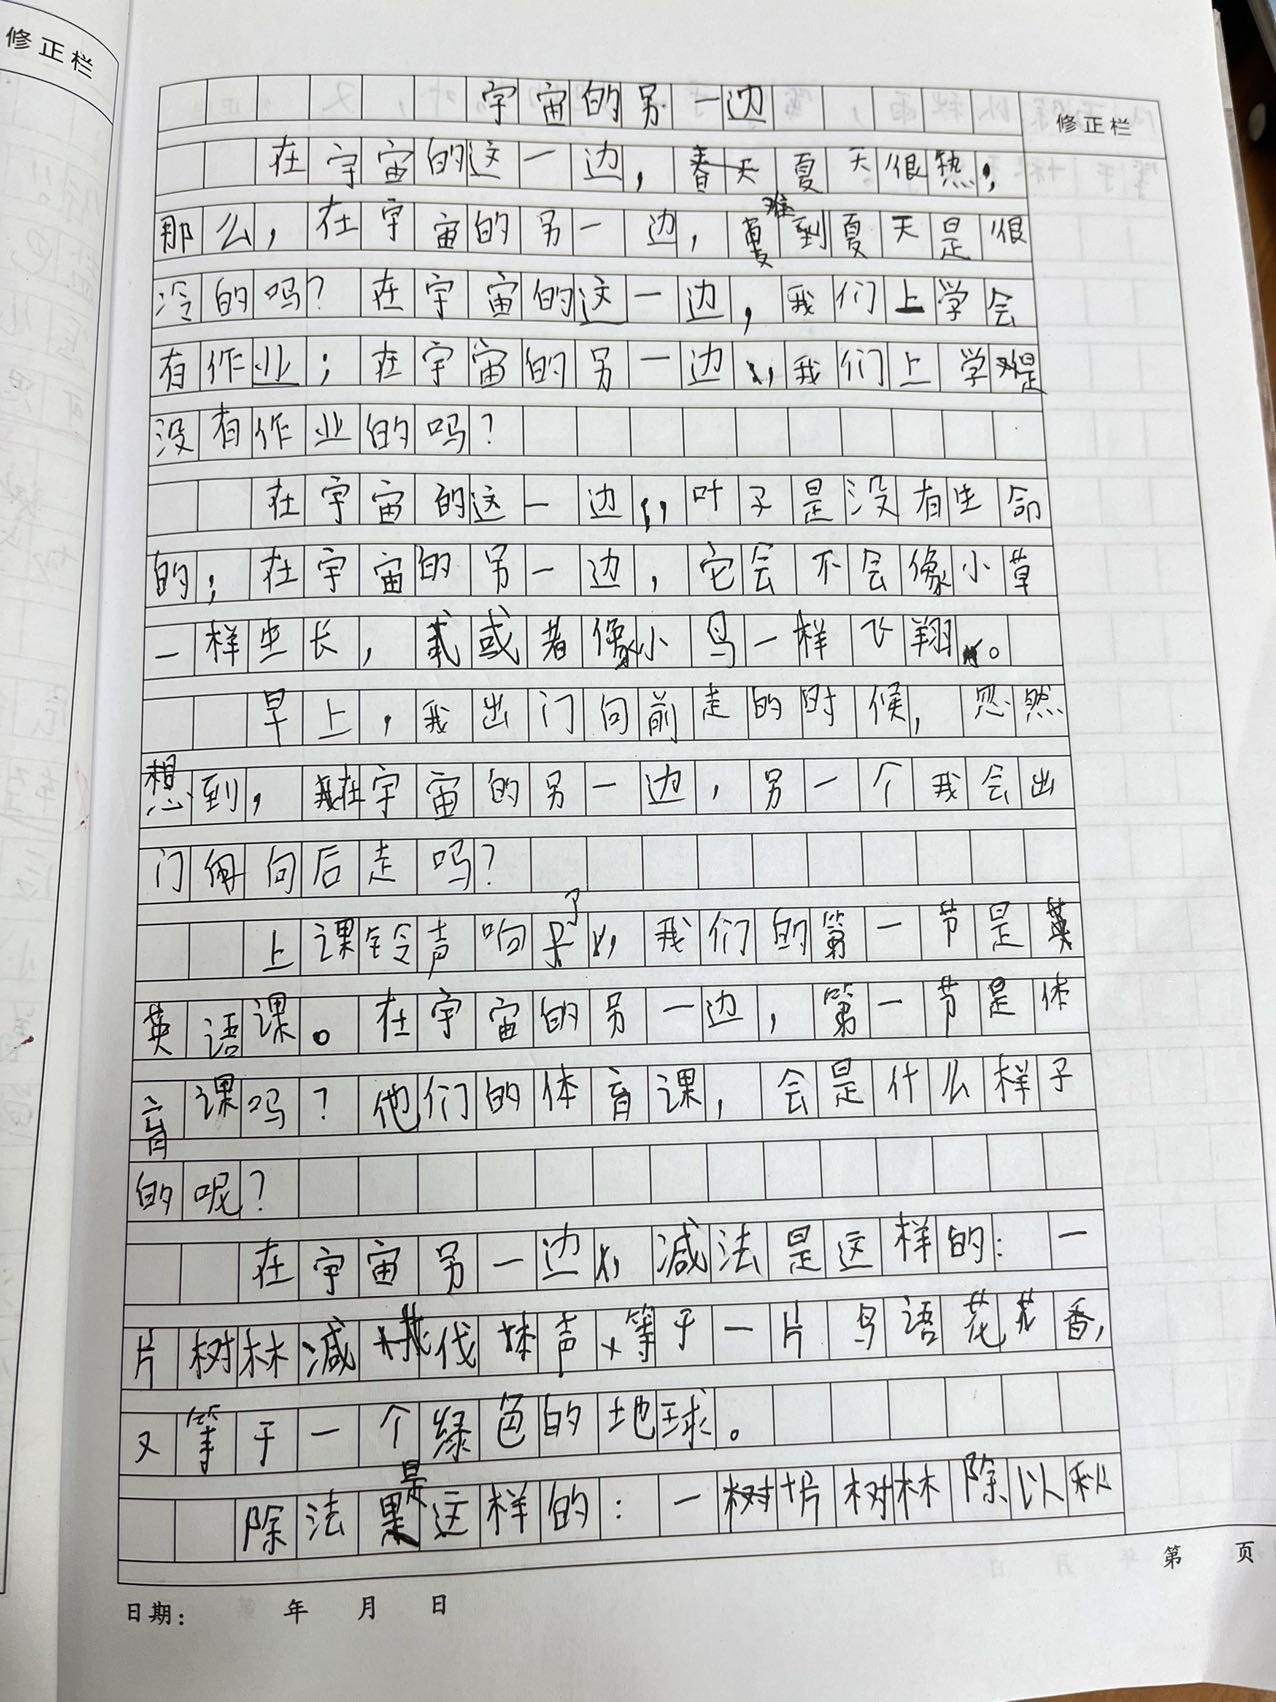 修正栏
宇宙的另一边
修正栏
在宇宙的这一边，夏天很热，
那么，在宇宙的另一边，难到夏天是很
冷的吗？在宇宙的这一边，我们上学会
有作业；在宇宙的另一边，我们上学是
没有作业的吗？
在宇宙的这一边，叶子是没有生命
的；在宇宙的另一边，它会不会像小草
一样生长，或者像小鸟一样飞翔。
早上，我出门向前走的时候，忽然
想到，在宇宙的另一边，另一个我会出
门向后走吗？
上课铃声响了，我们的第一节是
英语课。在宇宙的另一边，第一节是体
育课吗？他们的体育课，会是什么样子
的呢？
在宇宙另一边，减法是这样的：一
片树林减伐林声等于一片鸟语花香，
又等于一个绿色的地球。
除法是这样的：一片树林除以秋
日期： 年 月 日
第 页